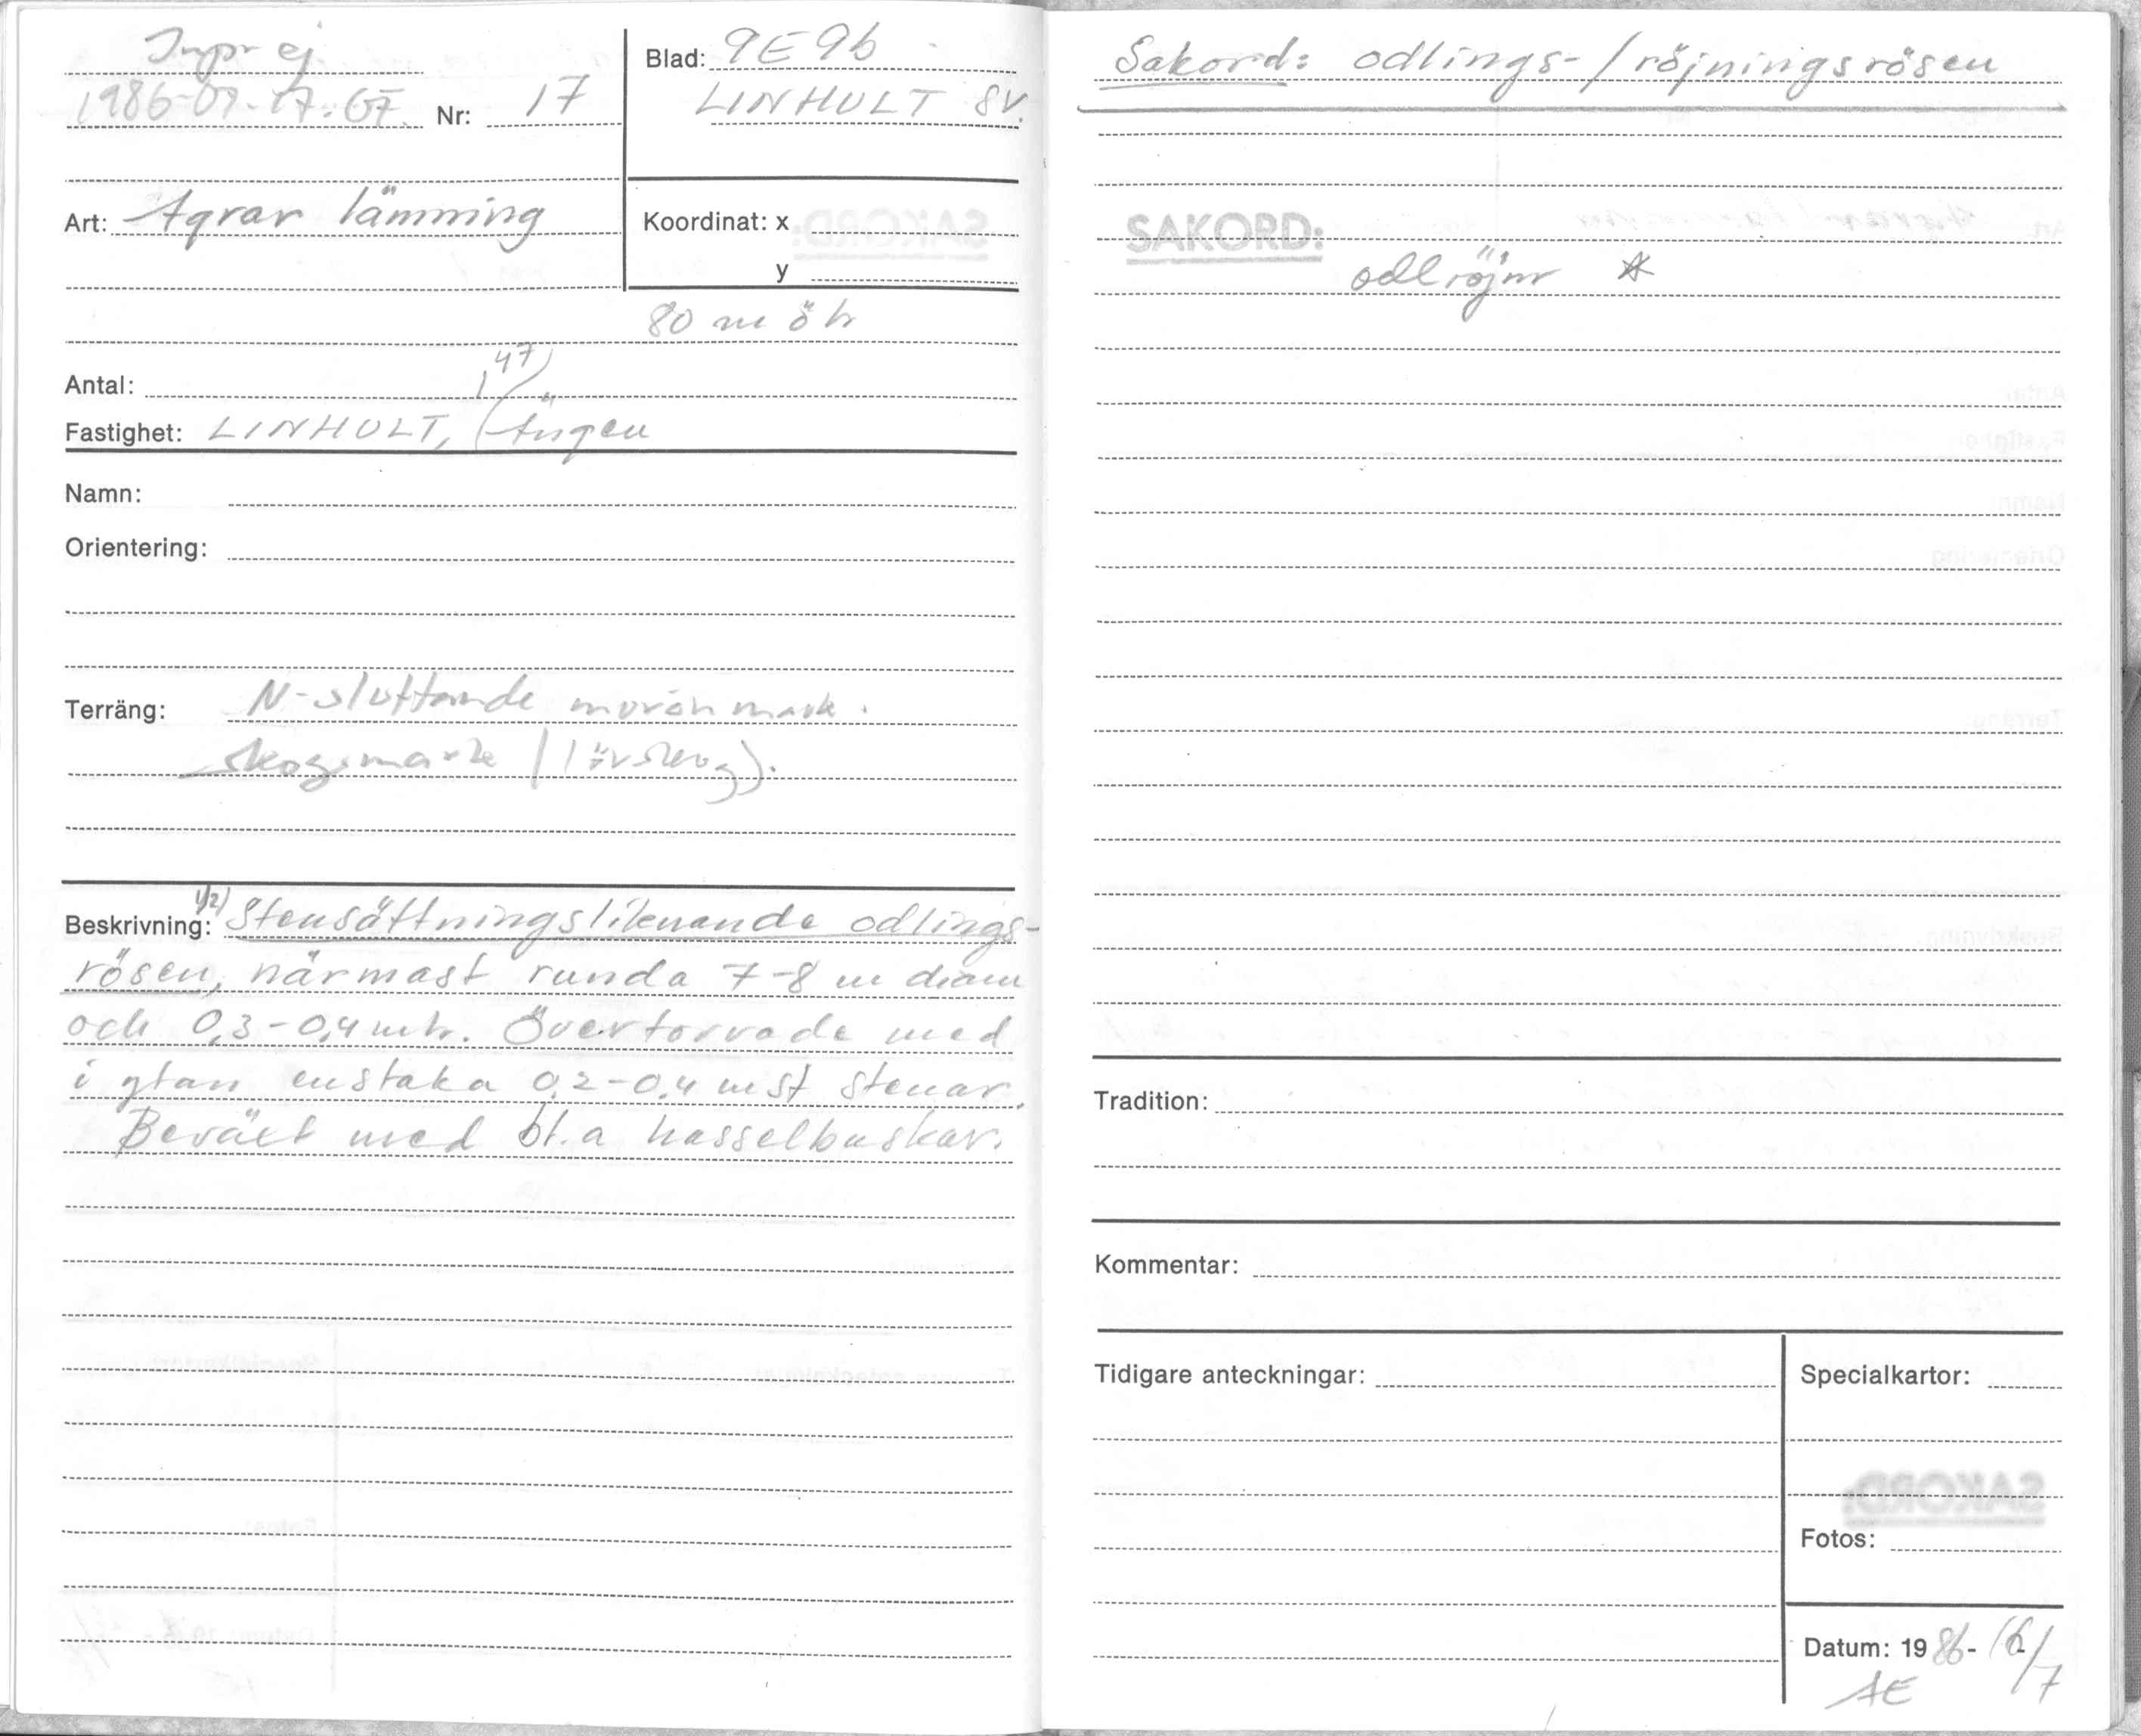 Inpr ej
1986-09-17. GF. Nr: 17
Blad: 9E 9b
LINHULT SV.
Art: Agrar lämning
Koordinat: x
y
80 m öh
Antal:
47)
Fastighet: LINHULT, (Ängen
Namn:
Orientering:
Terräng: N-sluttande moränmark.
skogsmark (lövskog).
Beskrivning: 1/2) Stensättningsliknande odlings-
rösen, närmast runda 7-8 m diam
och 0,3-0,4 m h. Övertorvade med
i ytan enstaka 0,2-0,4 m st stenar.
Beväxt med bl.a hasselbuskar.
Sakord: odlings-/röjningsrösen
SAKORD:
odlröjnr
Tradition:
Kommentar:
Tidigare anteckningar:
Specialkartor:
Fotos:
Datum: 1986-16/7
AE